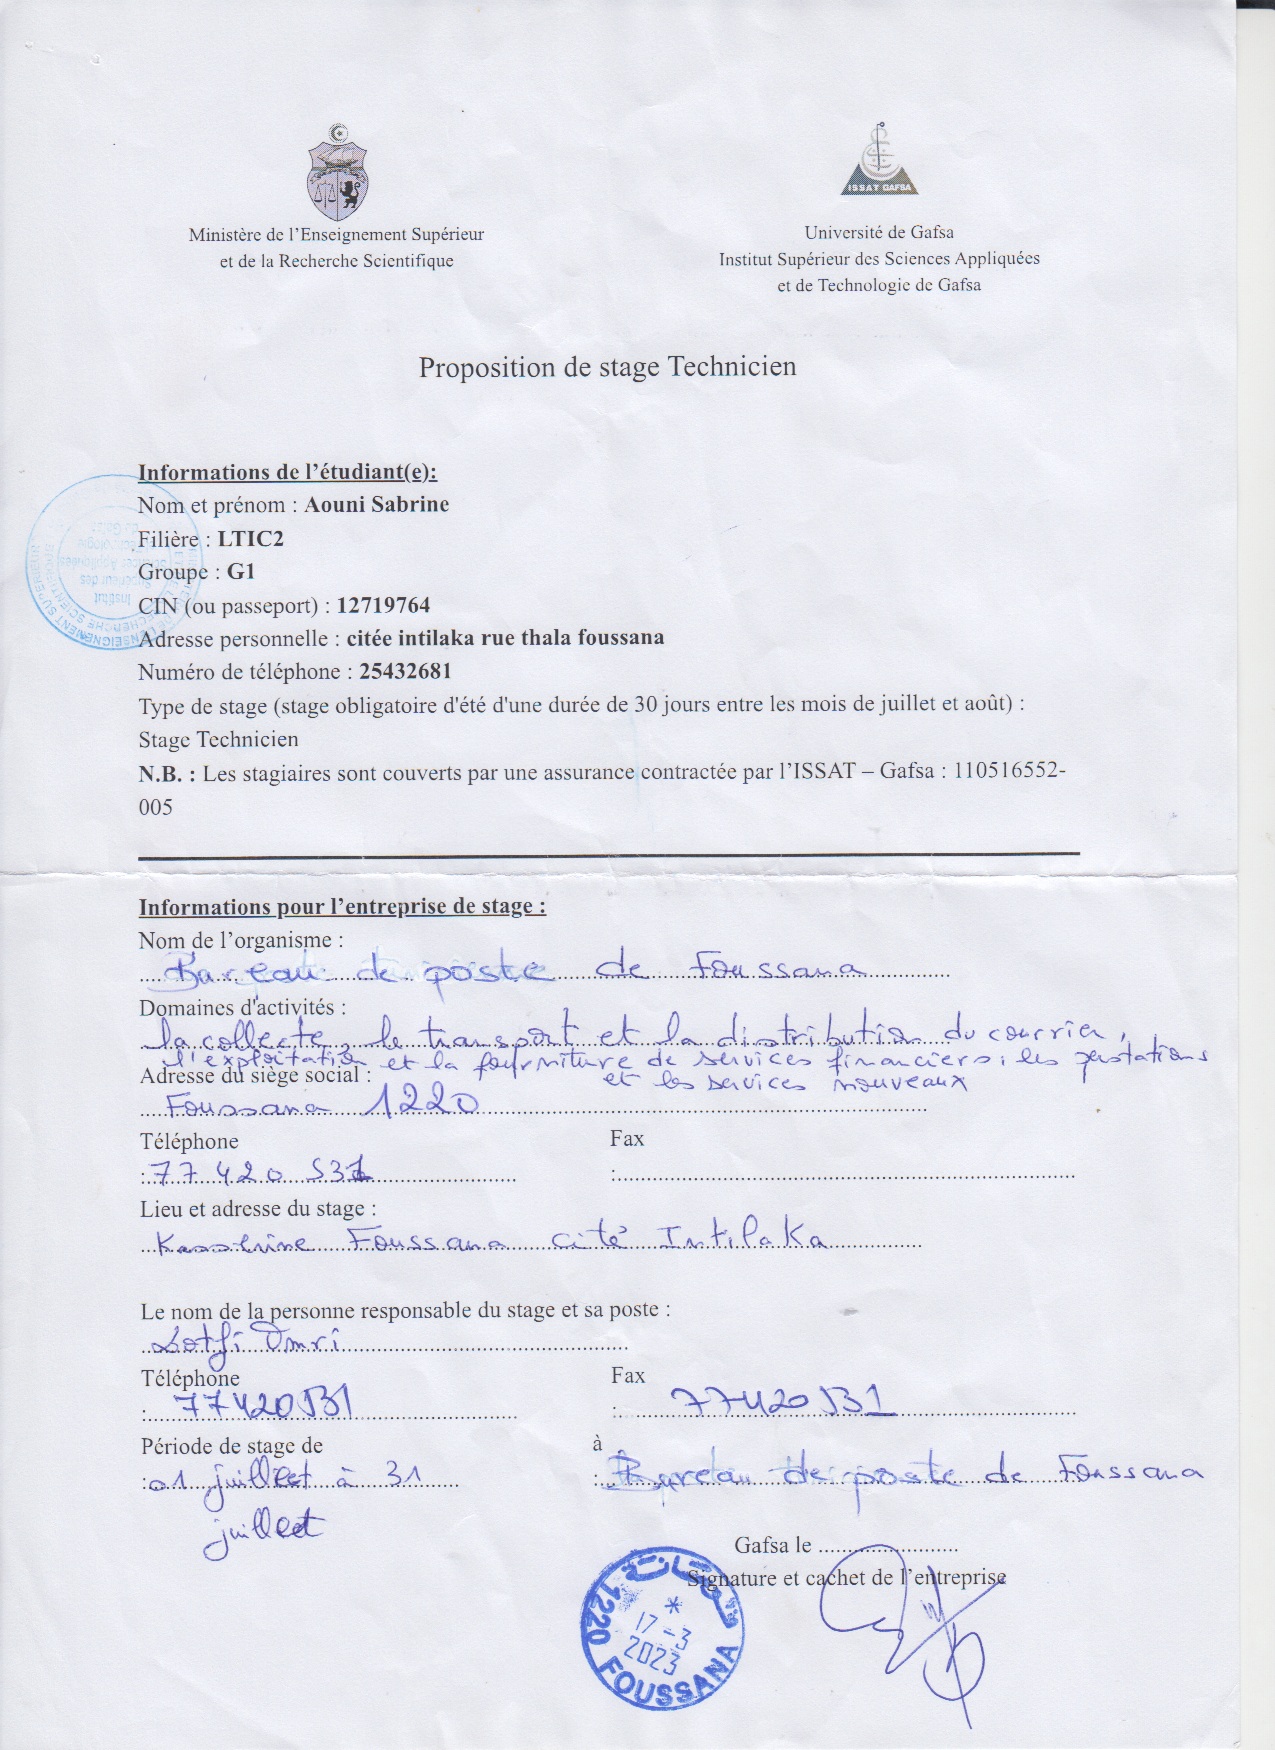 ISSAT GAFSA
Ministère de l'Enseignement Supérieur
et de la Recherche Scientifique
Université de Gafsa
Institut Supérieur des Sciences Appliquées
et de Technologie de Gafsa
Proposition de stage Technicien
Informations de l'étudiant(e):
Nom et prénom : Aouni Sabrine
Filière : LTIC2
Groupe : G1
CIN (ou passeport) : 12719764
Adresse personnelle : citée intilaka rue thala foussana
Numéro de téléphone : 25432681
Type de stage (stage obligatoire d'été d'une durée de 30 jours entre les mois de juillet et août) :
Stage Technicien
N.B. : Les stagiaires sont couverts par une assurance contractée par l'ISSAT – Gafsa : 110516552-
005
Institut
Supérieur des
Sciences Appliquées
Informations pour l'entreprise de stage :
Nom de l'organisme :
Bureau de poste de Foussana
Domaines d'activités :
la collecte, le transport et la distribution du courrier,
l'exploitation et la fourniture de services financiers, les prestations
et les services nouveaux
Adresse du siège social :
Foussana 1220
Téléphone Fax
: 77 420 531 :
Lieu et adresse du stage :
Kasserine Foussana cité Intilaka
Le nom de la personne responsable du stage et sa poste :
Lotfi Omri
Téléphone Fax
: 77420531 : 77420531
Période de stage de à
: 01 juillet à 31 : Bureau de poste de Foussana
juillet
Gafsa le
Signature et cachet de l'entreprise
فوسانة
1220 FOUSSANA
*
17-3
2023